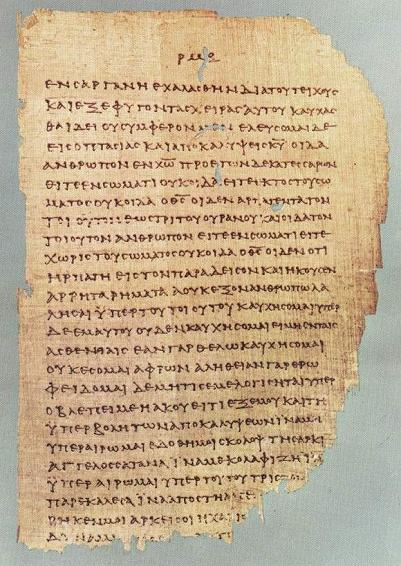 ΕΝϹΑΡΓΑΝΗΕΧΑΛΑϹΘΗΝΔΙΑΤΟΥΤΕΙΧΟΥϹ
ΚΑΙΕΞΕΦΥΓΟΝΤΑϹΧΕΙΡΑϹΑΥΤΟΥΚΑΥΧΑϹ
ΘΑΙΔΕΙΟΥϹΥΜΦΕΡΟΝΜΕΝΕΛΕΥϹΟΜΑΙΔΕ
ΕΙϹΟΠΤΑϹΙΑϹΚΑΙΑΠΟΚΑΛΥΨΕΙϹΚ̅Υ̅ΟΙΔΑ
ΑΝΘΡΩΠΟΝΕΝΧ̅Ω̅ΠΡΟΕΤΩΝΔΕΚΑΤΕϹϹΑΡΩΝ
ΕΙΤΕΕΝϹΩΜΑΤΙΟΥΚΟΙΔΑΕΙΤΕΕΚΤΟϹΤΟΥϹΩ
ΜΑΤΟϹΟΥΚΟΙΔΑΟΘ̅Ϲ̅ΟΙΔΕΝΑΡΠΑΓΕΝΤΑΤΟΝ
ΤΟΙΟΥΤΟΝΕΩϹΤΡΙΤΟΥΟΥΡΑΝΟΥΚΑΙΟΙΔΑΤΟΝ
ΤΟΙΟΥΤΟΝΑΝΘΡΩΠΟΝΕΙΤΕΕΝϹΩΜΑΤΙΕΙΤΕ
ΧΩΡΙϹΤΟΥϹΩΜΑΤΟϹΟΥΚΟΙΔΑΟΘ̅Ϲ̅ΟΙΔΕΝΟΤΙ
ΗΡΠΑΓΗΕΙϹΤΟΝΠΑΡΑΔΕΙϹΟΝΚΑΙΗΚΟΥϹΕΝ
ΑΡΡΗΤΑΡΗΜΑΤΑΑΟΥΚΕΞΟΝΑΝΘΡΩΠΩΛΑ
ΛΗϹΑΙΫΠΕΡΤΟΥΤΟΙΟΥΤΟΥΚΑΥΧΗϹΟΜΑΙΥΠΕΡ
ΔΕΕΜΑΥΤΟΥΟΥΔΕΝΚΑΥΧΗϹΟΜΑΙΕΙΜΗΕΝΤΑΙϹ
ΑϹΘΕΝΕΙΑΙϹΕΑΝΓΑΡΘΕΛΩΚΑΥΧΗϹΟΜΑΙ
ΟΥΚΕϹΟΜΑΙΑΦΡΩΝΑΛΗΘΕΙΑΝΓΑΡΕΡΩ
ΦΕΙΔΟΜΑΙΔΕΜΗΤΙϹΕΜΕΛΟΓΙϹΗΤΑΙΥΠΕΡ
ΟΒΛΕΠΕΙΜΕΗΑΚΟΥΕΙΤΙΕΞΕΜΟΥΚΑΙΤΗ
ΫΠΕΡΒΟΛΗΤΩΝΑΠΟΚΑΛΥΨΕΩΝΪΝΑΜΗ
ΥΠΕΡΑΙΡΩΜΑΙΕΔΟΘΗΜΟΙϹΚΟΛΟΨΤΗϹΑΡΚΙ
ΑΓΓΕΛΟϹϹΑΤΑΝΑΪΝΑΜΕΚΟΛΑΦΙΖΗΪΝΑ
ΫΠΕΡΑΙΡΩΜΑΙΥΠΕΡΤΟΥΤΟΥΤΡΙϹ
ΠΑΡΕΚΑΛΕϹΑΪΝΑΑΠΟϹΤΗ
ΚΕΝΜΟΙΑΡΚΕΙϹΟΙΗΧΑΡΙϹ